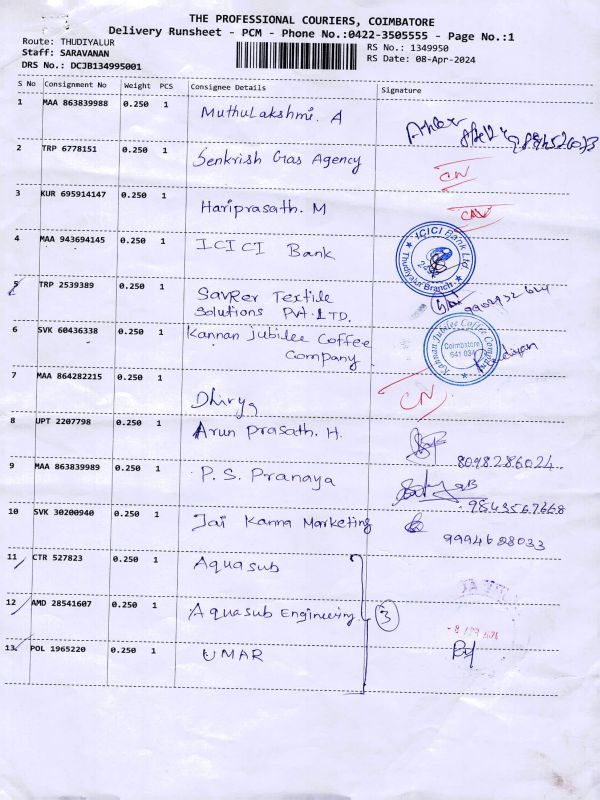 THE PROFESSIONAL COURIERS, COIMBATORE
Delivery Runsheet - PCM - Phone No.:0422-3505555 - Page No.:1
Route: THUDIYALUR
RS No.: 1349950
Staff: SARAVANAN
RS Date: 08-Apr-2024
DRS No.: DCJB134995001
S No Consignment No Weight PCS Consignee Details Signature
1 MAA 863839988 0.250 1 Muthulakshmi. A
2 TRP 6778151 0.250 1 Senkrish Gas Agency CN
3 KUR 695914147 0.250 1 Hariprasath. M CN
4 MAA 943694145 0.250 1 ICICI Bank
ICICI Bank Ltd.
Thudiyalur Branch.
5 TRP 2539389 0.250 1 SavRer Textile
Solutions Pvt. LTD.
6 SVK 60436338 0.250 1 Kannan Jubilee Coffee
Company
Kannan Jubilee Coffee Company
Coimbatore
641 034
7 MAA 864282215 0.250 1 Dhivya CN
8 UPT 2207798 0.250 1 Arun Prasath. H. 8098286024
9 MAA 863839989 0.250 1 P. S. Pranaya 9843567668
10 SVK 30200940 0.250 1 Jai Kanna Marketing 9994628033
11 CTR 527823 0.250 1 Aquasub
12 AMD 28541607 0.250 1 Aquasub Engineering 3
13 POL 1965220 0.250 1 UMAR